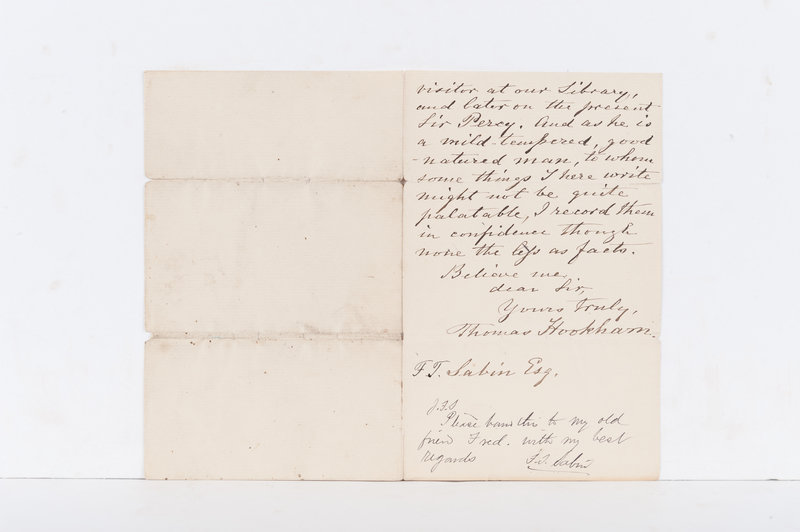 visitor at our Library,
and later on the present
Sir Percy. And as he is
a mild-tempered, good
-natured man, to whom
some things I here write
might not be quite
palatable, I record them
in confidence though
none the less as facts.
Believe me,
dear Sir,
Yours truly,
Thomas Hookham.
F. T. Sabin Esq.
Please this to my old
friend Fred. with my best
regards F. T. Sabin